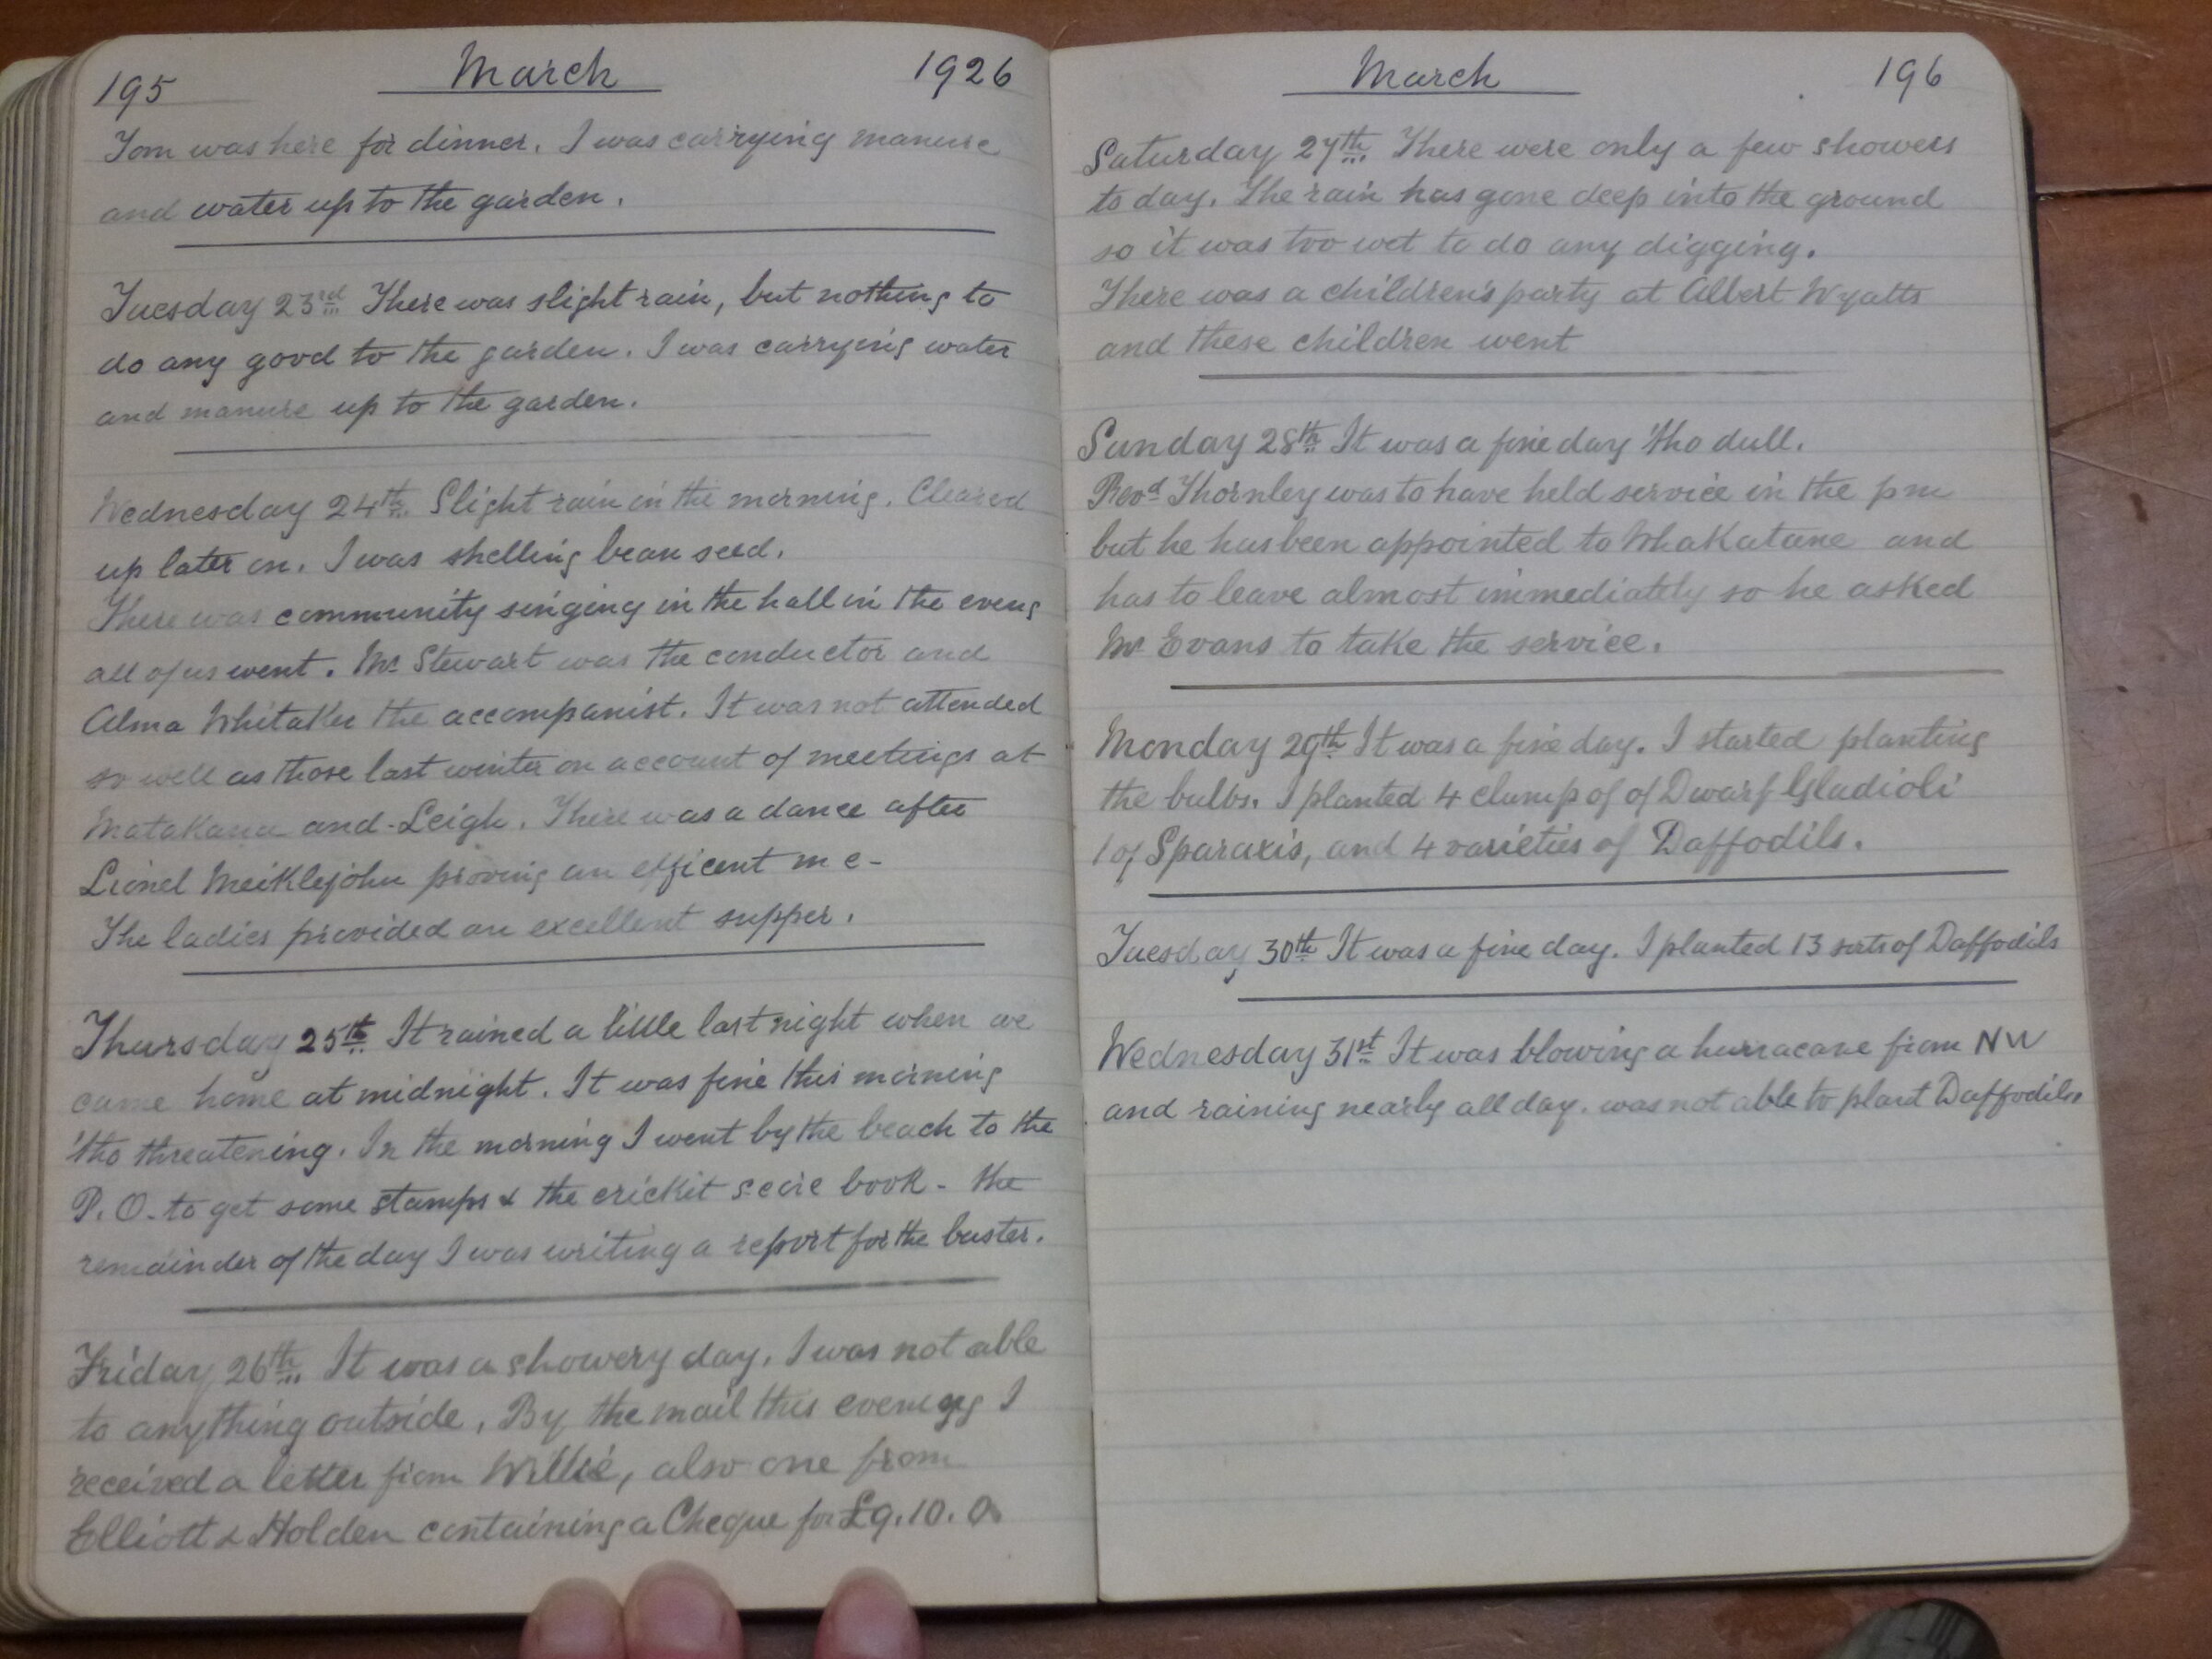 195 March 1926
Tom was here for dinner. I was carrying manure
and water up to the garden.
Tuesday 23rd There was slight rain, but nothing to
do any good to the garden. I was carrying water
and manure up to the garden.
Wednesday 24th. Slight rain in the morning. Cleared
up later on. I was shelling bean seed.
There was community singing in the hall in the eveng
all of us went. Mr Stewart was the conductor and
Alma Whitaker the accompanist. It was not attended
so well as those last winter on account of meetings at
Matakana and Leigh. There was a dance after
Lionel Meiklejohn proving an efficent m c-
The ladies provided an excellent supper.
Thursday 25th. It rained a little last night when we
came home at midnight. It was fine this morning
'tho threatening. In the morning I went by the beach to the
P. O. to get some stamps & the crickit score book - the
remainder of the day I was writing a report for the buster.
Friday 26th. It was a showery day. I was not able
to anything outside. By the mail this evening I
received a letter from Willie, also one from
Elliott & Holden containing a Cheque for £9.10.0.
March 196
Saturday 27th. There were only a few showers
to day. The rain has gone deep into the ground
so it was too wet to do any digging.
There was a children's party at Albert Wyatts
and these children went
Sunday 28th It was a fine day 'tho dull.
Revd Thornley was to have held service in the pm
but he has been appointed to Whakatane and
has to leave almost immediately so he asked
Mr Evans to take the service.
Monday 29th It was a fine day. I started planting
the bulbs. I planted 4 clump of of Dwarf Gladioli
1 of Sparaxis, and 4 varieties of Daffodils.
Tuesday 30th It was a fine day. I planted 13 sorts of Daffodils
Wednesday 31st It was blowing a hurracane from NW
and raining nearly all day. was not able to plant Daffodils.